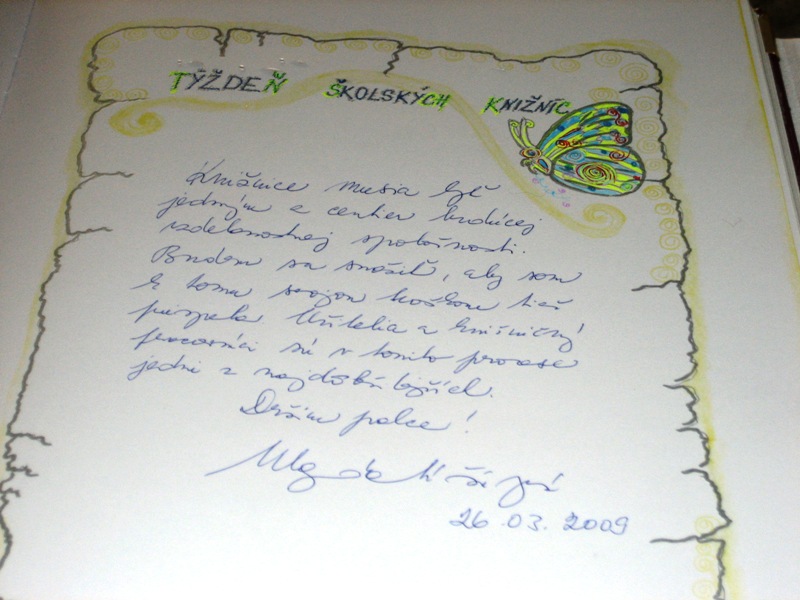 TÝŽDEŇ ŠKOLSKÝCH KNIŽNÍC
Knižnice musia byť
jedným z centier budúcej
vzdelanostnej spoločnosti.
Budem sa snažiť, aby som
k tomu svojou troškou tiež
prispela. Učitelia a knižničný
pracovníci sú v tomto procese
jedni z najdôležitejších.
Držím palce!
26. 03. 2009